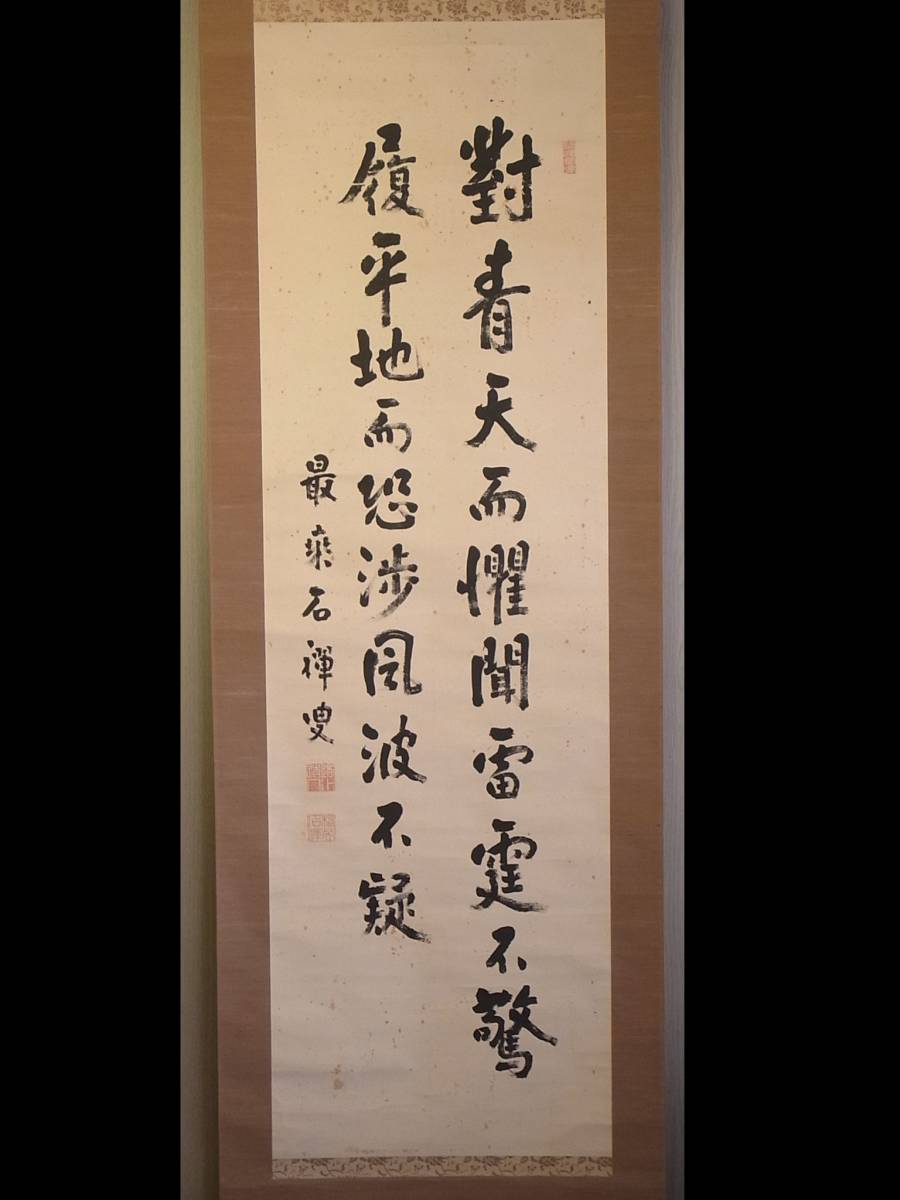 對青天而懼聞雷霆不驚
履平地而恐涉風波不疑
最乘石禅叟